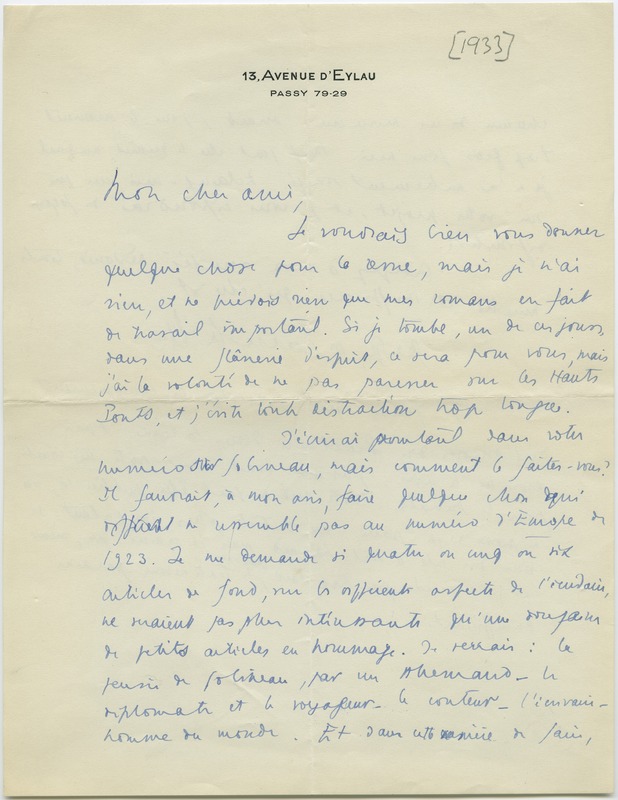 [1933]
13, AVENUE D'EYLAU
PASSY 79-29
Mon cher ami,
Je voudrais bien vous donner
quelque chose pour la revue, mais je n'ai
rien, et ne prévois rien que mes romans en fait
de travail important. Si je tombe, un de ces jours,
dans une flânerie d'esprit, ce sera pour vous, mais
j'ai la volonté de ne pas paresser sur les Hauts
Ponts, et j'évite toute distraction trop longue.
J'écrirai pourtant dans votre
numéro sur Gobineau, mais comment le faites-vous?
Il faudrait, à mon avis, faire quelque chose qui
ne ressemble pas au numéro d'Europe de
1923. Je me demande si quatre ou cinq ou six
articles de fond, sur les différents aspects de l'écrivain,
ne seraient pas plus intéressants qu'une douzaine
de petits articles en hommage. Je verrais : la
pensée de Gobineau, par un Allemand _ le
diplomate et le voyageur _ le conteur _ l'écrivain _
homme du monde. Et dans cette manière de faire,